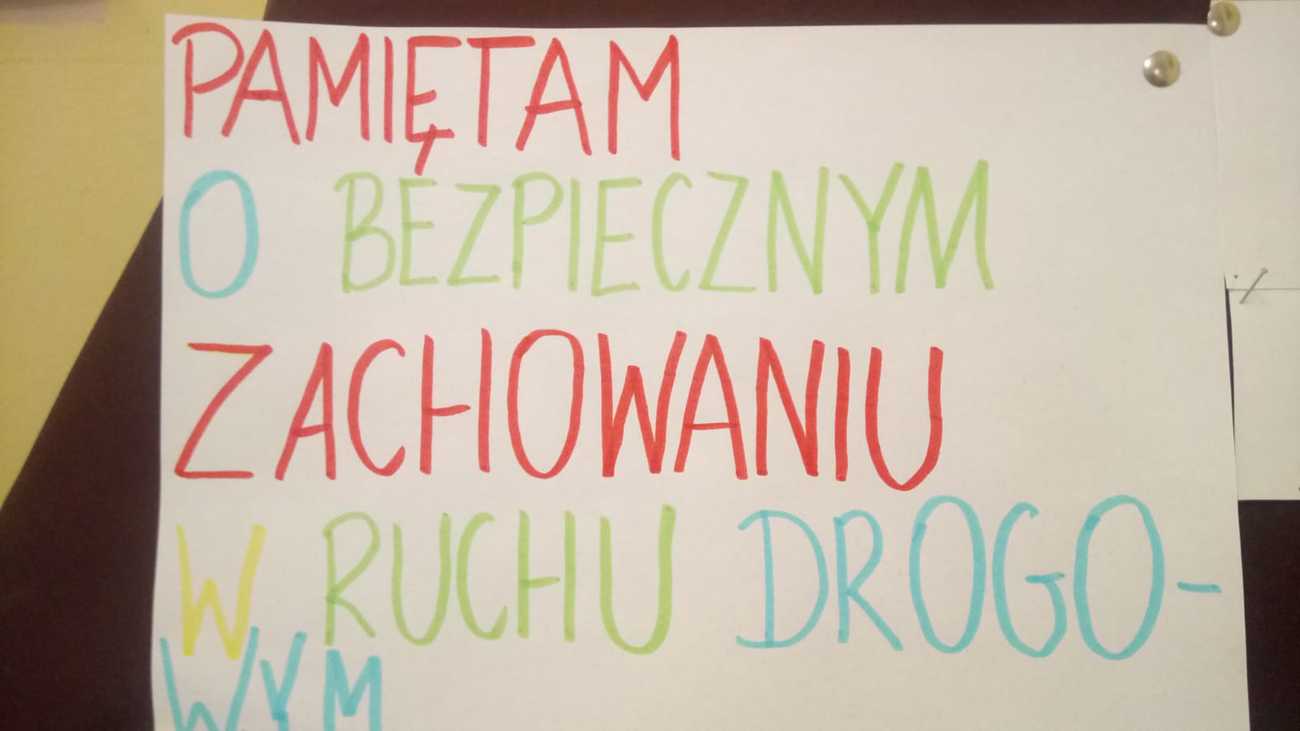 PAMIĘTAM
O BEZPIECZNYM
ZACHOWANIU
W RUCHU DROGO-
WYM